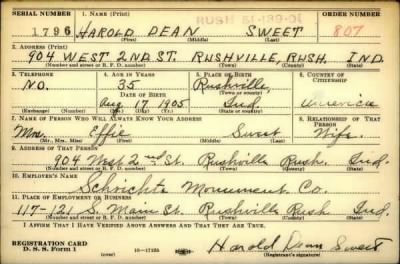 SERIAL NUMBER 1. NAME (Print) RUSH 51-139-01 ORDER NUMBER
1796 HAROLD DEAN SWEET 807
(First) (Middle) (Last)
2. ADDRESS (Print)
904 WEST 2ND. ST. RUSHVILLE, RUSH. IND.
(Number and street or R. F. D. number) (Town) (County) (State)
3. TELEPHONE 4. AGE IN YEARS 5. PLACE OF BIRTH 6. COUNTRY OF CITIZENSHIP
NO. 35 Rushville,
DATE OF BIRTH (Town or county)
Aug. 17 1905 Ind. America
(Exchange) (Number) (Mo.) (Day) (Yr.) (State or country)
7. NAME OF PERSON WHO WILL ALWAYS KNOW YOUR ADDRESS 8. RELATIONSHIP OF THAT PERSON
Mrs. Effie Sweet Wife.
(Mr., Mrs., Miss) (First) (Middle) (Last)
9. ADDRESS OF THAT PERSON
904 West 2nd St. Rushville Rush Ind.
(Number and street or R. F. D. number) (Town) (County) (State)
10. EMPLOYER'S NAME
Schrichte Monument Co.
11. PLACE OF EMPLOYMENT OR BUSINESS
117-121 S. Main St. Rushville Rush Ind.
(Number and street or R. F. D. number) (Town) (County) (State)
I AFFIRM THAT I HAVE VERIFIED ABOVE ANSWERS AND THAT THEY ARE TRUE.
REGISTRATION CARD
D. S. S. Form 1 (over) 16—17125 Harold Dean Sweet
(Registrant's signature)